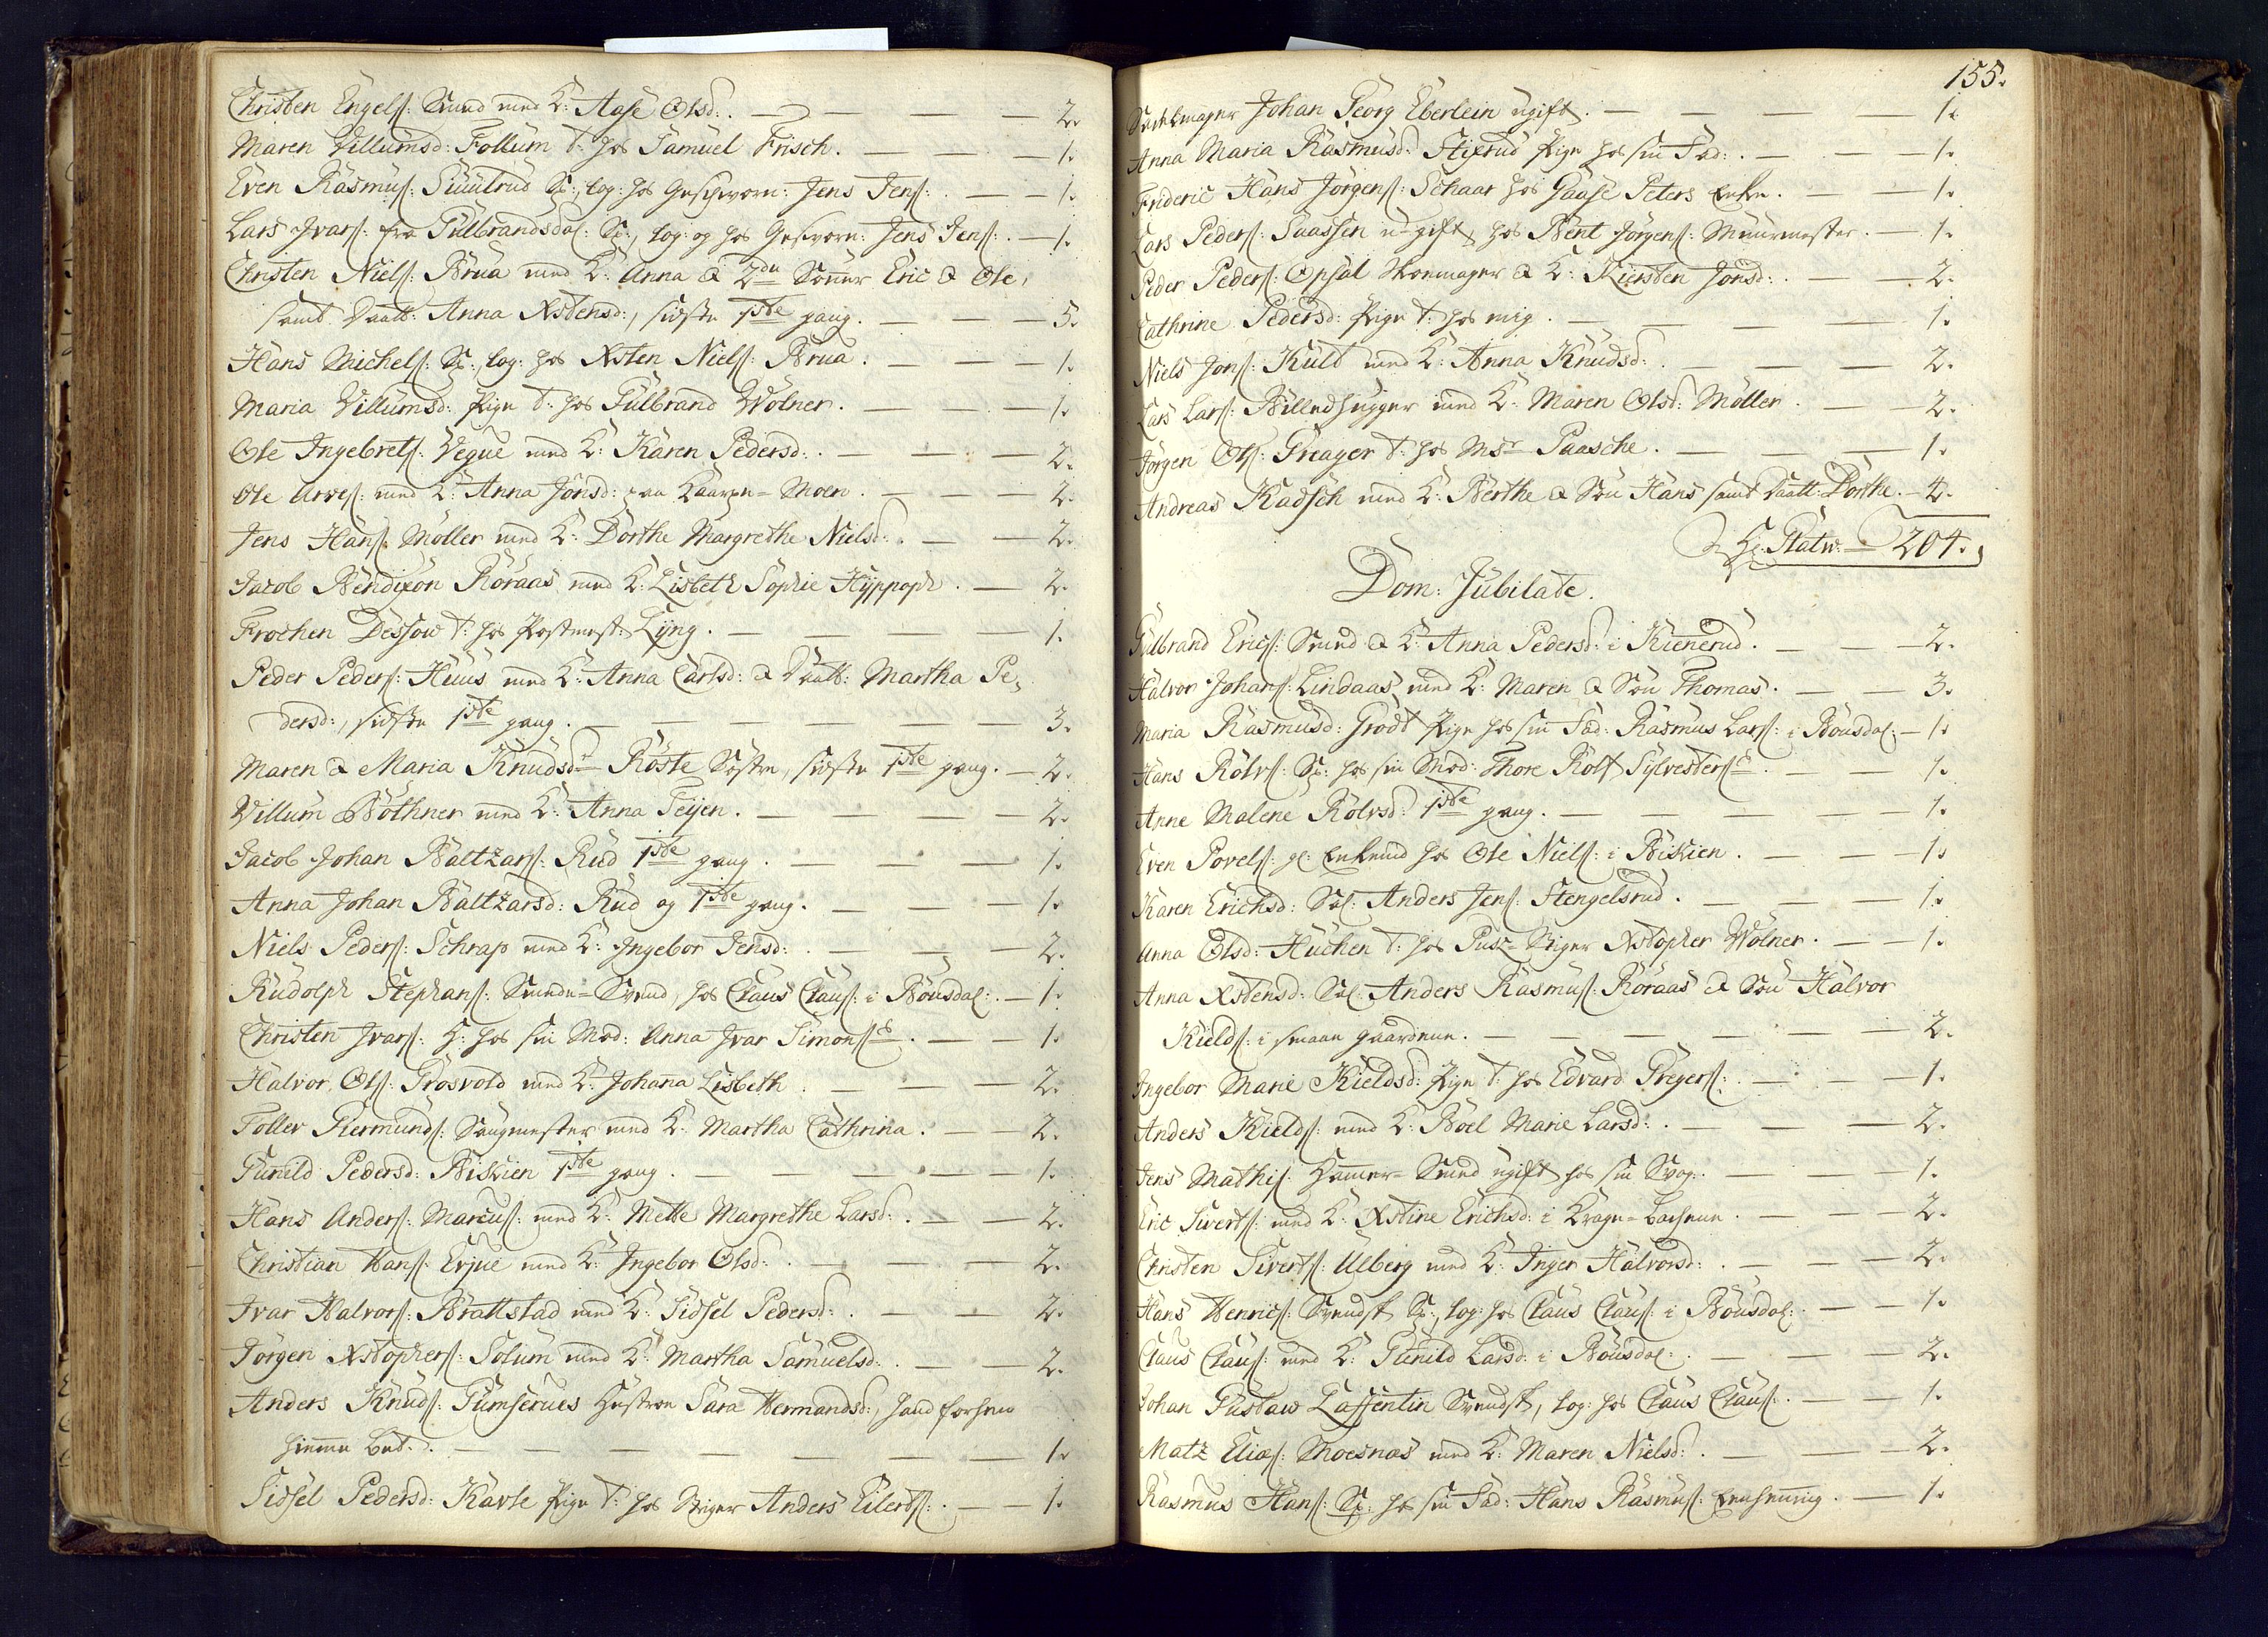 Christen Engels: Smed med K: Aase Olsd: — 2.
Maren Villumsd: Follum t: hos Samuel Frisch. — 1.
Even Rasmus: Suulrud S:, log: hos Geschworn: Jens Jens: — 1.
Lars Ivars: fra Gulbrandsdal: S:, log: og hos Gesworn: Jens Jens: — 1.
Christen Niels: Brua med K: Anna & 2de Sønner Eric & Ole,
samt Daatt: Anna Xstensd:, sidste 1ste gang. — 5.
Hans Michels: S:, log: hos Xsten Niels: Brua. — 1.
Maria Villumsd: Pige t: hos Gulbrand Wølner. — 1.
Ole Ingebrets: Vegue med K: Karen Pedersd: — 2.
Ole Arves: med K: Anna Jonsd: paa — Moen. — 2.
Jens Hans: Møller med K: Dorthe Margrethe Nielsd: — 2.
Jacob Bendixon Röraas med K: Lisbeth Sophie Hyppoph — 2.
Frochen Dessow t: hos Postmest: Lyng. — 1.
Peder Peders: Huus med K: Anna Carlsd: & Daatt: Martha Pe-
dersd:, sidste 1ste gang. — 3.
Maren & Maria Knudsd: Röste Söstre, sidste 1ste gang. — 2.
Villum Böthner med K: Anna Teijen. — 2.
Jacob Johan Baltzars: Rud 1ste gang. — 1.
Anna Johan Baltzarsd: Rud og 1ste gang. — 1.
Niels Peders: Schrap med K: Ingebor Jensd: — 2.
Rudolph Stephans: Smede-Svend, hos Claus Claus: i Bousdal: — 1.
Christen Ivars: H: hos sin Mod: Anna Ivar Simons: — 1.
Halvor Ols: Grosvold med K: Johana Lisbeth. — 2.
Toller Giermunds: Saugmester med K: Martha Cathrina. — 2.
Gunild Pedersd: Biskien 1ste gang. — 1.
Hans Anders: Marcus: med K: Mette Margrethe Larsd: — 2.
Christian Hans: Erjue med K: Ingebor Olsd: — 2.
Ivar Halvors: Brattstad med K: Sidsel Pedersd: — 2.
Jörgen Xstophers: Solum med K: Martha Samuelsd: — 2.
Anders Knuds: Gumserues Hustroe Sara Hermandsd:, hand forhen
hiemme — 1.
Sidsel Pedersd: Karle Pige t: hos Stiger Anders Eilerts: — 1.
155.
Johan Georg Eberlein ugift. — 1.
Anna Maria Rasmusd: Stixrud Pige hos sin Fad: — 1.
Frideric Hans Jörgens: Schaar hos Gaase Peters Enke. — 1.
Lars Peders: Saassen ugift, hos Bent Jörgens: Muurmester. — 1.
Peder Peders: Opsal Skoemager & K: Kiersten Jonsd: — 2.
Cathrine Pedersd: Pige t: hos mig. — 1.
Niels Jons: Kult med K: Anna Knudsd: — 2.
Lars Lars: Billedhugger med K: Maren Olsd: Möller. — 2.
Jörgen Ols: Greager t: hos Msr Paasche. — 1.
Andreas Kadsch med K: Berthe & Sön Hans samt Daatt: Dorthe. — 4.
204.
Dom: Jubilate.
Gulbrand Erics: Smed & K: Anna Pedersd: i Kienerud. — 2.
Halvor Johans: Lindaas med K: Maren & Sön Thomas. — 3.
Maria Rasmusd: Grodt Pige hos sin Fad: Rasmus Lars: i Bousdal: — 1.
Hans Rolvs: S: hos sin Mod: Thore Rolf Sylvesters: — 1.
Anne Malene Rolvsd: 1ste gang. — 1.
Even Povels: gl: Enkemd hos Ole Niels: i Biskien. — 1.
Karen Erichsd: Sal: Anders Jens: Stengelsrud. — 1.
Anna Olsd: Huchen t: hos Puz-Stiger Xstopher Wölner. — 1.
Anna Xstensd: Sal: Anders Rasmus: Röraas & Sön Halvor
Kields: i smaae gaardene. — 2.
Ingebor Marie Kieldsd: Pige t: hos Edvard Gregers: — 1.
Anders Kields: med K: Boel Marie Larsd: — 2.
Jens Mathis: Hammer-Smed ugift hos sin Svog: — 1.
Eric Siverts: med K: Xstine Erichsd: i Krage-Bachene. — 2.
Christen Siverts: Ulberg med K: Inger Halvorsd: — 2.
Hans Henrics: Svendsk S:, log: hos Claus Claus: i Bousdal: — 1.
Claus Claus: med K: Gunild Larsd: i Bousdal: — 2.
Johan Gustaw Laffentin Svendsk, log: hos Claus Claus: — 1.
Matz Elias: Moesnæs med K: Maren Nielsd: — 2.
Rasmus Hans: S: hos sin Fad: Hans Rasmus: — 1.